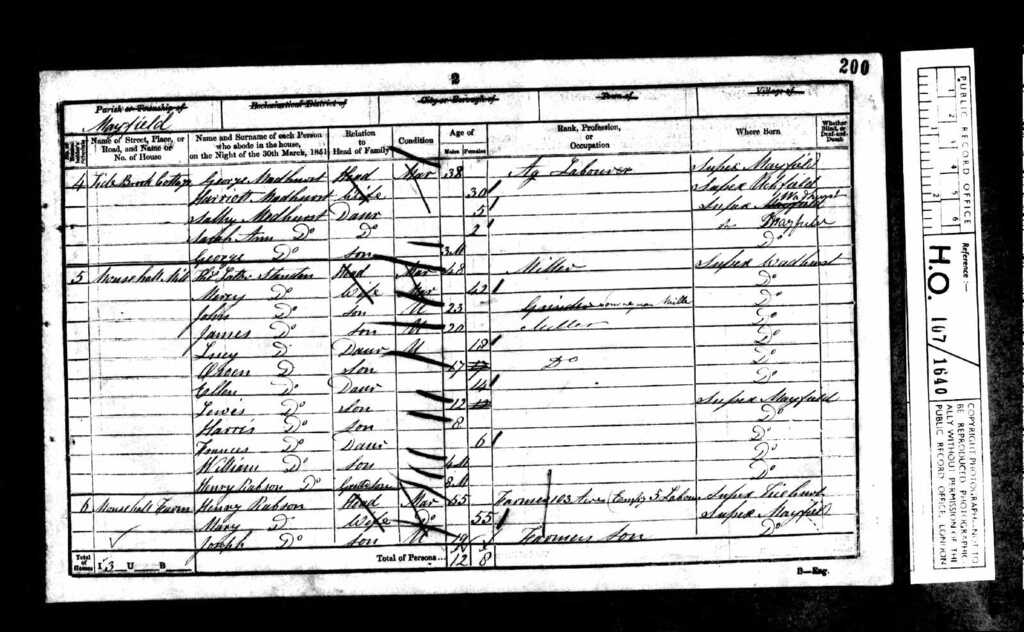 2
200
Parish or Township of
Ecclesiastical District of
City or Borough of
Town of
Village of
Mayfield
Name of Street, Place, or Road, and Name or No. of House
Name and Surname of each Person who abode in the house, on the Night of the 30th March, 1851
Relation to Head of Family
Condition
Age of
Males Females
Rank, Profession, or Occupation
Where Born
Whether Blind, or Deaf-and-Dumb
4 Tide Brook Cottage George Medhurst Head Mar 38 Ag Labourer Sussex Mayfield
Harriott Medhurst Wife 30 Sussex
Sally Medhurst Daur 5 Sussex
Sarah Ann Do Do 2 Do Mayfield
George Do Son 3 M Do
5 Mousehall Mill Thos Standen Head Mar 48 Miller Sussex Wadhurst
Mercy Do Wife Mar 42 Do
John Do Son U 23 Grinder Mill Do
James Do Son U 20 Miller Do
Lucy D Daur U 18 Do
Owen D Son 17 Do Do
Ellen Do Daur 14 Do
Lewis Do Son 12 Sussex Mayfield
Harris Do Son 8 Do
Frances Do Daur 6 Do
William Do Son 4 Do
Henry Rabson Do 8 M Do
6 Mousehall Farm Henry Rabson Head Mar 55 Farmer 103 Acres Emp 3 Labour Sussex Ticehurst
Mary D Wife Do 55 Sussex Mayfield
Joseph Do Son U 19 Farmers Son Do
Total of Houses I 3 U B
Total of Persons... 12 8
B—Eng.
PUBLIC RECORD OFFICE
1 2 3 4 5 6
1 2
Reference:—
H.O. 107/1640
COPYRIGHT PHOTOGRAPH—NOT TO BE REPRODUCED PHOTOGRAPHICALLY WITHOUT PERMISSION OF THE PUBLIC RECORD OFFICE, LONDON